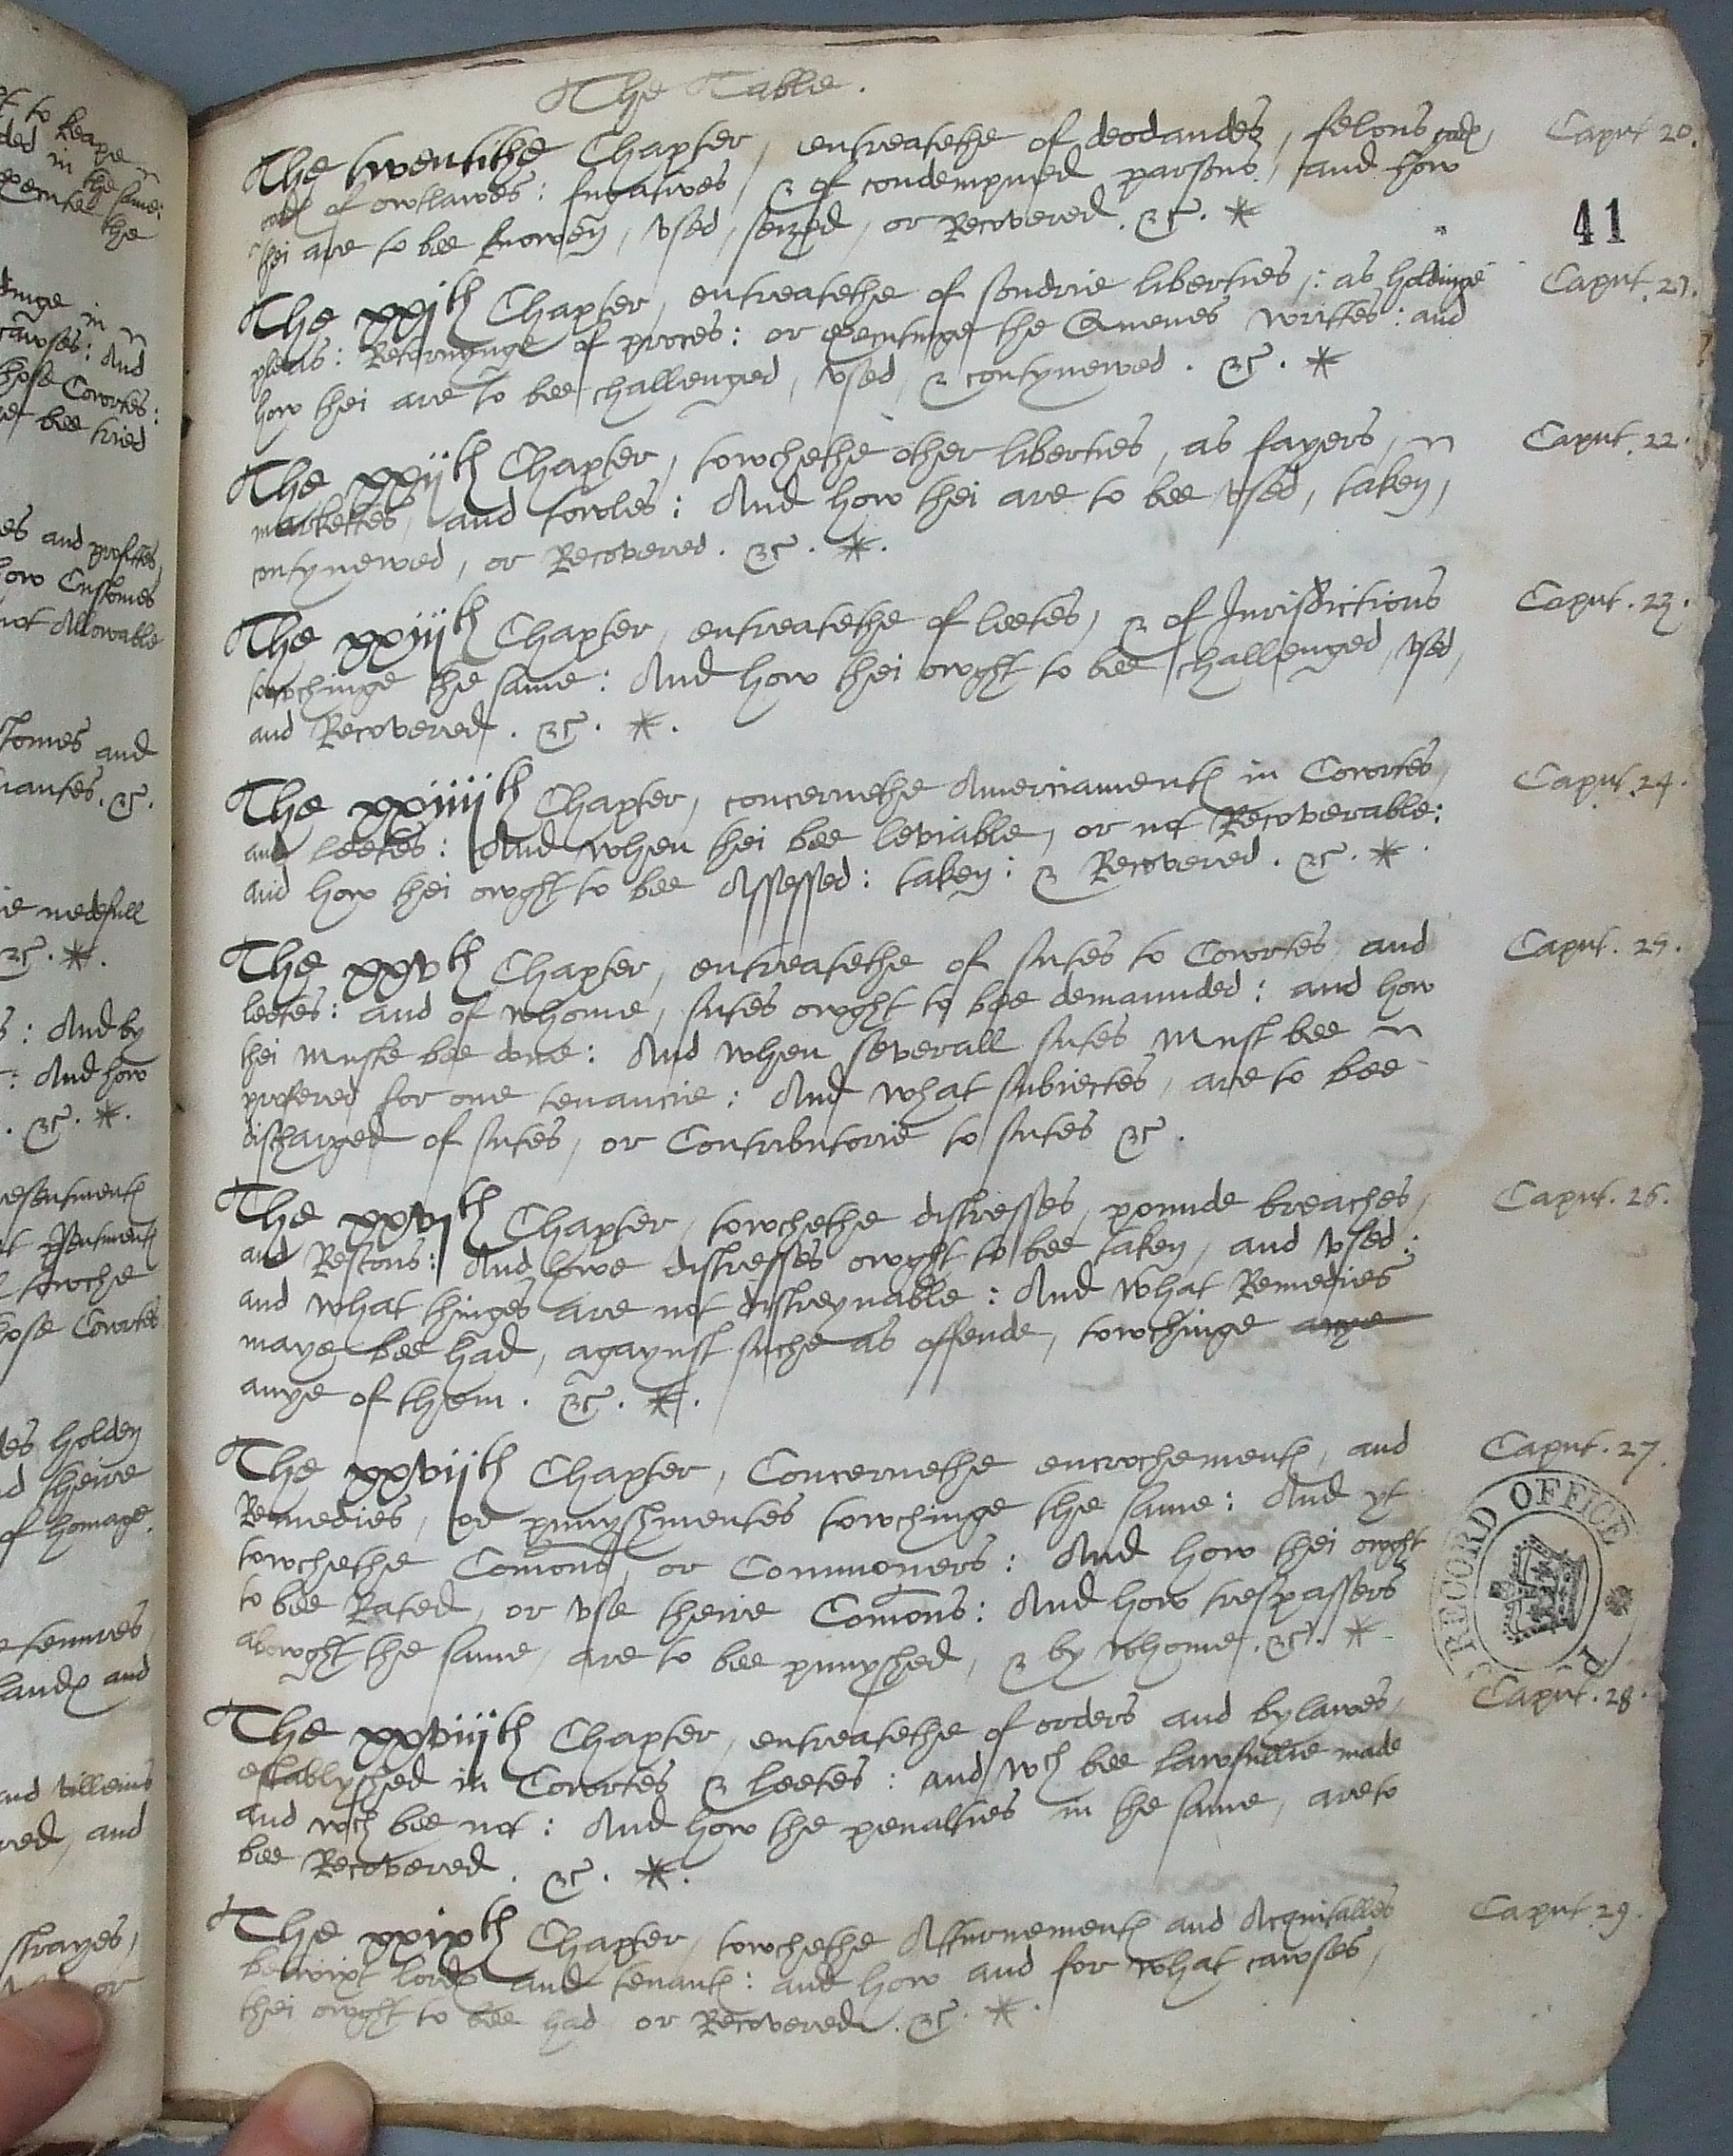 The Table.
The twentithe Chapter, entreatethe of deodandes, felons
of owtlawes: fugatives, & of condempned parsons, and how
thei are to bee knowen, vsed, seized, or Recovered. &c. *
Caput 20.
41
The xxjth Chapter, entreatethe of sondrie liberties,: as holdinge
pleas: Retornynge of proces: or executinge the Quenes writtes: and
how thei are to bee challenged, vsed, & contynewed. &c. *
Caput. 21.
The xxijth Chapter, towchethe other liberties, as fayers,
markettes, and towles: And how thei are to bee vsed, taken,
contynewed, or Recovered. &c. *.
Caput. 22.
The xxiijth Chapter, entreatethe of leetes, & of Jurisdictions
towchinge the same: And how thei owght to bee challenged, vsed,
and Recovered. &c. *.
Caput. 23.
The xxiiijth Chapter, concernethe Amerciamentes in Cowrtes,
and leetes: And when thei bee leviable, or not Recoverable:
and how thei owght to bee Assessed: taken: & Recovered. &c. *.
Caput. 24.
The xxvth Chapter, entreatethe of sutes to Cowrtes, and
leetes: and of whome, sutes owght to bee demaunded: and how
thei muste bee done: And when severall sutes must bee
profered for one tenancie: And what subiectes, are to bee
discharged of sutes, or Contributorie to sutes &c.
Caput. 25.
The xxvjth Chapter, towchethe distresses, pounde breaches,
and Rescous: And howe distresses owght to bee taken, and vsed:
and what thinges are not distreynable: And what Remedies
maye bee had, agaynst suche as offende, towchinge anye
anye of them. &c. *.
Caput. 26.
The xxvijth Chapter, Concernethe encrochementes, and
Remedies, or punyshmentes towchinge the same: And yt
towchethe Comons, or Commoners: And how thei owght
to bee Rated, or vse theire Comons: And how trespassers
abowght the same, are to bee punyshed, & by whome. &c. *
Caput. 27.
RECORD OFFICE
P
The xxviijth Chapter, entreatethe of orders and bylawes,
establyshed in Cowrtes & leetes: and wch bee lawfullie made
and wch bee not: And how the penalties in the same, are to
bee Recovered. &c. *.
Caput. 28.
The xxixth Chapter, towchethe Atturnementes and Acquitalles
betwixt lordes and tenantes: and how and for what cawses,
thei owght to bee had or Recovered. &c. *.
Caput 29.